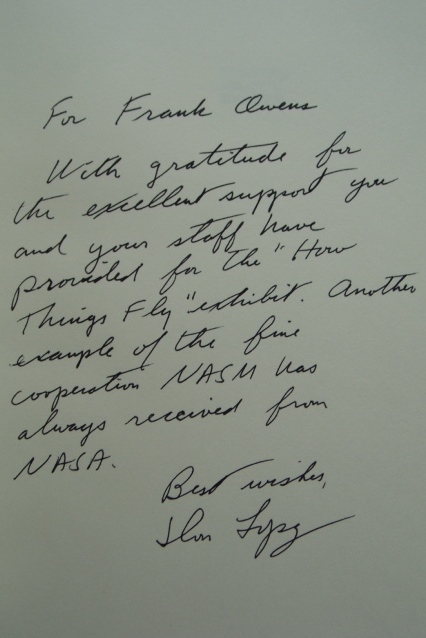 For Frank Owens
With gratitude for
the excellent support you
and your staff have
provided for the "How
Things Fly" exhibit. Another
example of the fine
cooperation NASM has
always received from
NASA.
Best wishes,
Don Lopez